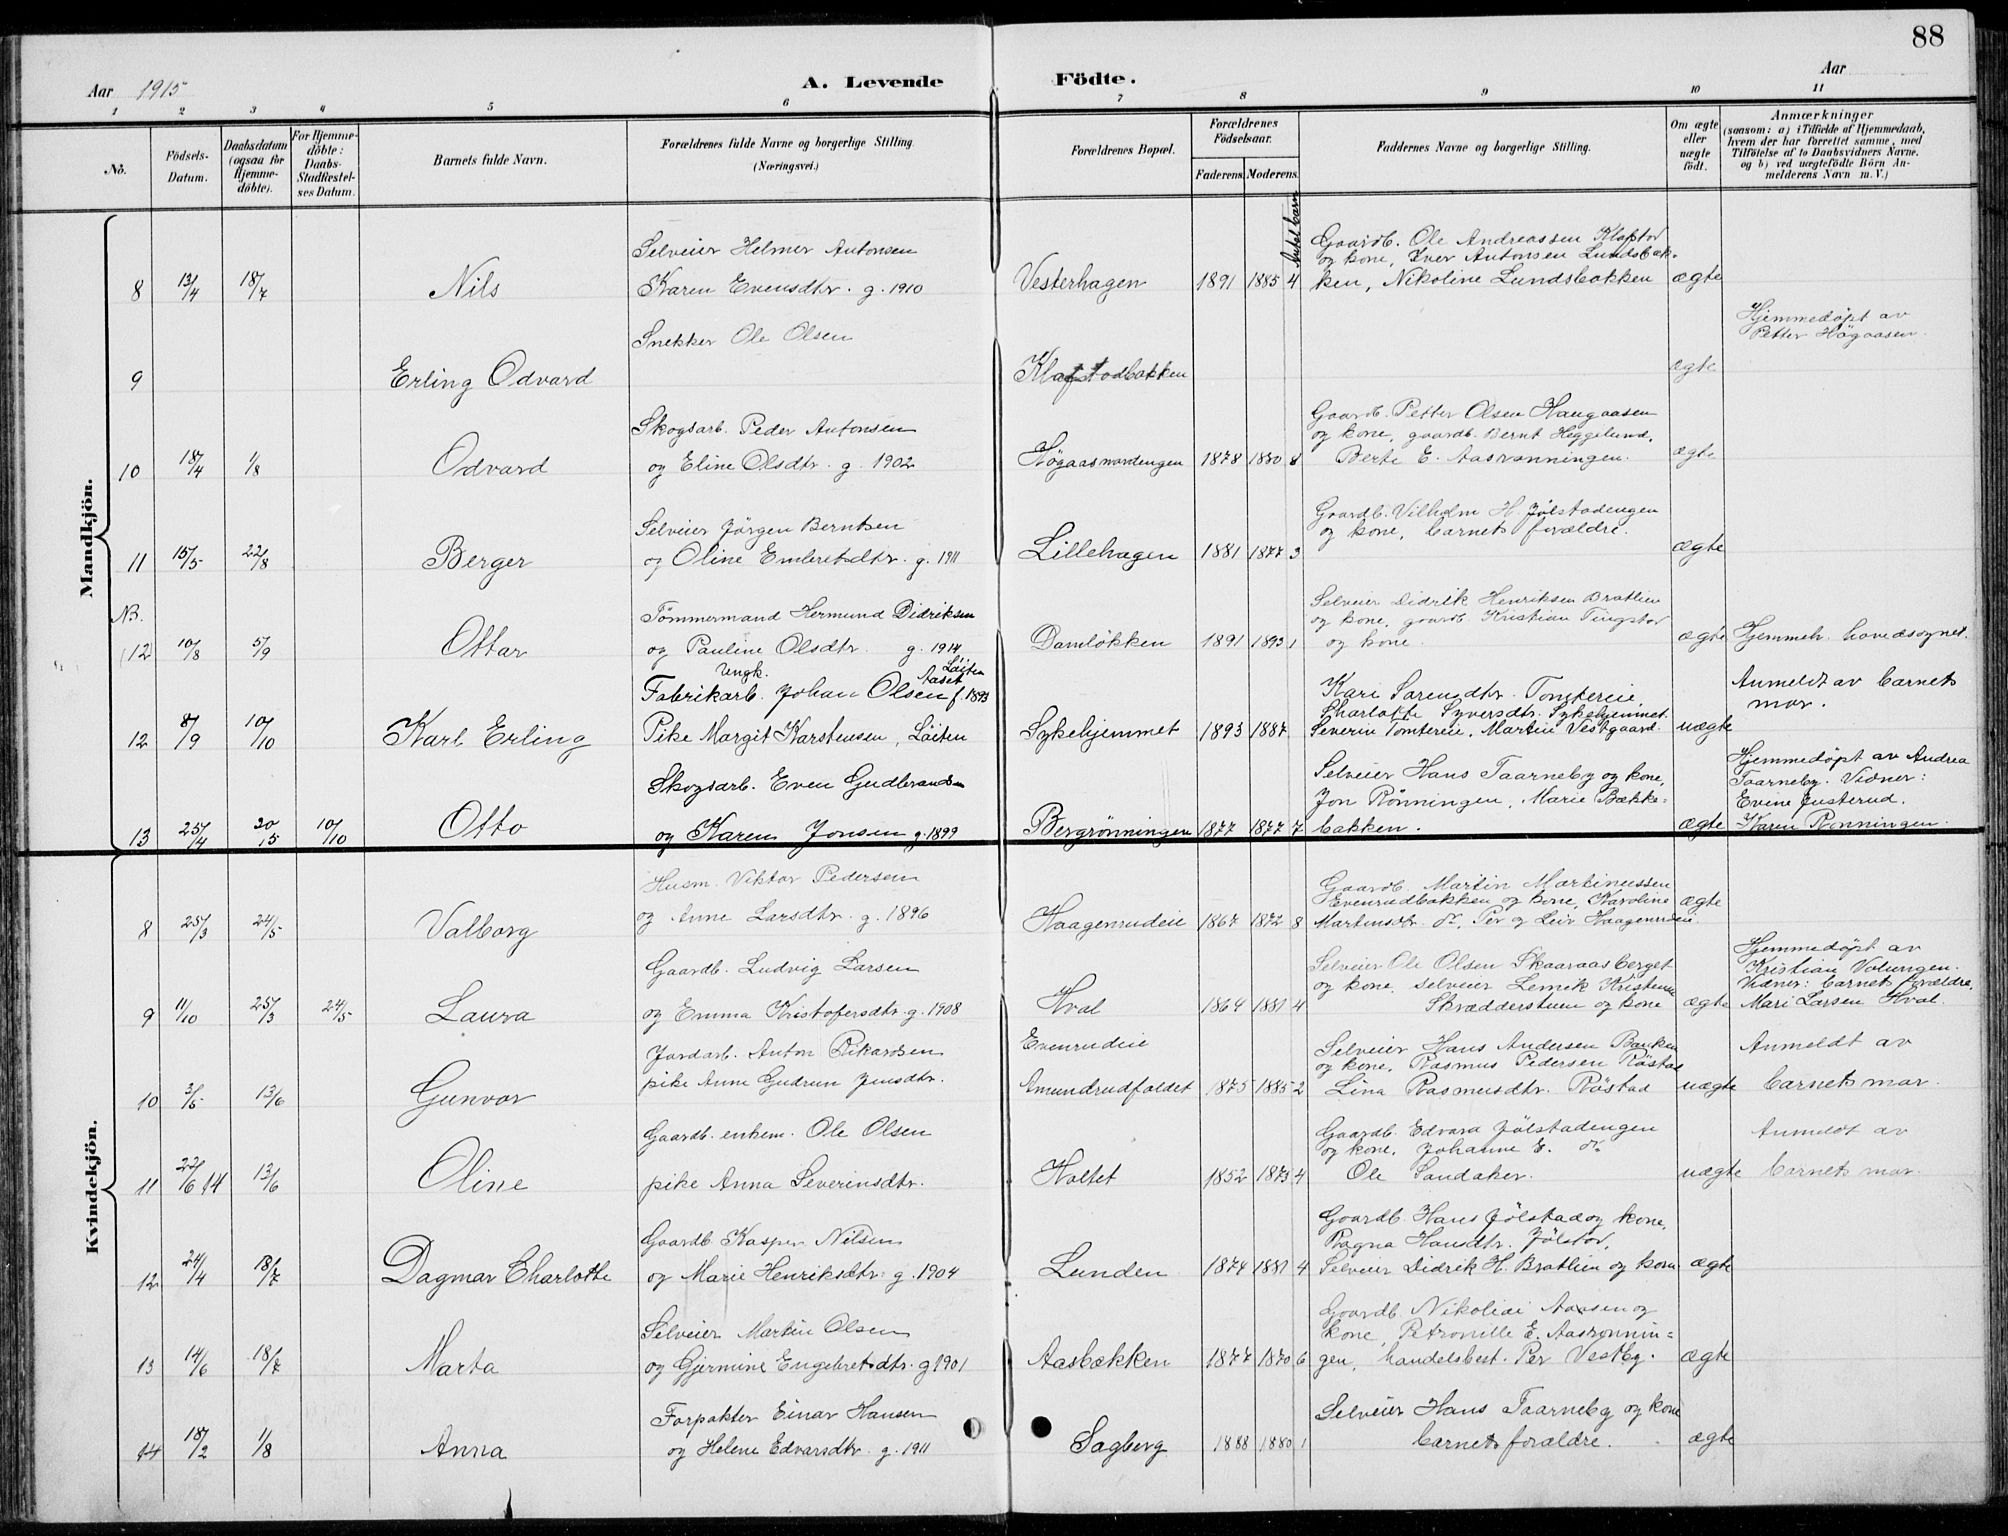 88
Aar 1915
A. Levende Födte.
Aar
1 2 3 4 5 6 7 8 9 10 11
No.
Födsels-Datum.
Daabsdatum (ogsaa for Hjemme-döbte).
For Hjemme-döbte: Daabs-Stadfæstel-ses Datum.
Barnets fulde Navn.
Forældrenes fulde Navne og borgerlige Stilling.
(Næringsvei.)
Forældrenes Bopæl.
Forældrenes Födselsaar.
Faderens. Moderens.
Antal barn
Faddernes Navne og borgerlige Stilling.
Om ægte eller uægte födt.
Anmærkninger
(saasom: a) i Tilfælde af Hjemmedaab,
hvem der har forrettet samme, med
Tilföielse af to Daabsvidners Navne.
og b) ved uægtefödte Börn An-
melderens Navn m. V.)
Mandkjön.
Selveier Helmer Antonsen
Gaardb. Ole Andreassen Klafstad
og kone, Iver Antonsen Lundsbak-
8 13/4 18/7 Nils Karen Evensdtr. g. 1910 Vesterhagen 1891 1885 4 ken, Nikoline Lundsbakken ægte
Snekker Ole Olsen
Hjemmedøpt av
Petter Högaasen.
9 Erling Odvard Klafstadbakken ægte
Skogsarb. Peder Antonsen
Gaardb. Petter Olsen Haugaasen
og kone, gaardb. Bernt Heggelund,
10 18/4 1/8 Odvard og Eline Olsdtr. g. 1902 Høgaasmordengen 1878 1880 8 Berte E. Aasrønningen. ægte
Selveier Jørgen Berntsen
Gaardb. Vilhelm H. Jølstadengen
og kone, barnets forældre.
11 15/5 22/8 Berger og Oline Embretsdtr. g. 1911 Lillehagen 1881 1877 3 ægte
NB.
Tömmermand Hermund Didriksen
Selveier Didrik Henriksen Bratlien
og kone, gaardb. Kristian Tingstad
(12 10/8 5/9 Ottar og Pauline Olsdtr. g. 1914 Damløkken 1891 1893 1 og kone. ægte Hjemmeh. hovedsognet.
Ungk. Aaset Løiten
Fabrikarb. Johan Olsen f. 1893
Kari Sørensdtr. Tomtereie,
Charlotte Syversdtr. Sykehjemmet.
Anmeldt av barnets
mor.
12 8/9 10/10 Karl Erling Pike Margit Karstensen, Løiten Sykehjemmet 1893 1887 Severin Tomtereie, Martin Vestgaard. uægte
Skogsarb. Even Gudbrandsen
Selveier Hans Taarneby og kone,
Jon Rönningen, Marie Bække-
Hjemmedøpt av Andrea
Taarneby. Vidner:
Evene Justerud.
13 25/4 20/5 10/10 Otto og Karen Jonsen g. 1899 Bergrönningen 1877 1877 7 bakken. ægte Karen Rønningen.
Kvindekjön.
Husm. Viktor Pedersen
Gaardb. Martin Martinussen
Evenrudbakken og kone, Karoline
8 25/3 24/5 Valborg og Anne Larsdtr. g. 1896 Haagenrudeie 1867 1872 8 Martensdtr. do, Per og Leiv Haagenrudeie. ægte
Gaardb. Ludvig Larsen
Selveier Ole Olsen Skaaraasberget
og kone, selveier Lemek Kristensen
Hjemmedøpt av
Kristian Volungen.
Vidner: barnets forældre,
9 11/10 25/3 24/5 Laura og Emma Kristofersdtr. g. 1908 Hval 1864 1881 4 Skrædderstuen og kone ægte Mari Larsen Hval.
Jordarb. Anton Rikardsen
Evenrudeie
Selveier Hans Andersen Bakken
og kone, Rasmus Pedersen Røstad
Anmeldt av
10 3/5 13/6 Gunvor pike Anne Gudrun Jensdtr. Amundrudfaldet 1875 1885 2 Lina Rasmusdtr. Røstad uægte barnets mor.
Gaardb. enkem. Ole Olsen
Gaardb. Edvard Jølstadengen
og kone, Johanne E. do
Anmeldt av
11 22/6 14 13/6 Oline pike Anna Severinsdtr. Holtet 1852 1873 4 Ole Sandaker. uægte barnets mor.
Gaardb. Kasper Nilsen
Gaardb. Hans Jølstad og kone,
Ragna Hansdtr. Jølstad,
12 24/4 18/7 Dagmar Charlotte og Marie Henriksdtr. g. 1904 Lunden 1874 1881 4 Selveier Didrik H. Bratlien og kone ægte
Selveier Martin Olsen
Gaardb. Nikolai Aassen og
kone, Petronille E. Aasrønnin-
13 14/6 18/7 Marta og Gjermine Engebretsdtr. g 1901 Aasbækken 1877 1870 6 gen, handelsbest. Per Vestby. ægte
Forpakter Einar Hansen
Selveier Hans Taarneby og kone
14 18/2 1/8 Anna og Helene Edvardsdtr. g. 1911 Sagberg 1888 1880 1 barnets forældre. ægte